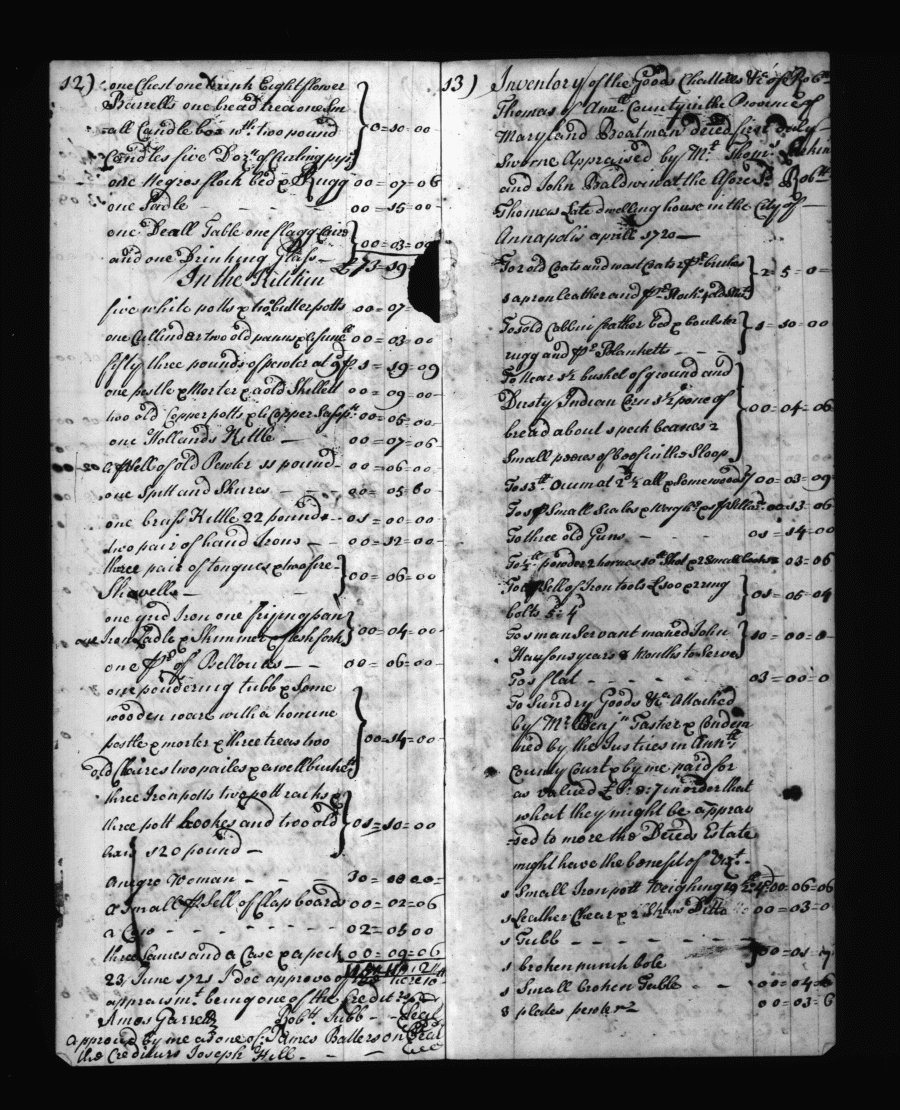 12) one Chest one Drink Eight flower
Barrells one bread trea one Sm
=all Candle box wth: two pound
Candles five Dozn: of Curling pyps } 0=10=00
one Negros flock bed & Rugg 00=07=06
one Sadle - - - - 00=15=00
one Deall Table one flagg Chire
and one Drinking Glass } 00=03=00
£71=19=
In the Kitchin
five white potts & two butter potts 00=07=
one Cullinder two old panns 00=03=00
fifty three pounds of pewter at 9d P 1=19=09
one pestle & Morter & a old Skillett 00=09=00
two old Copper potts & Copper 00=05=00
one Hollands Kettle - 00=07=06
a psell of old Pewter 11 pound - 00=06=00
one Spitt and Skures - - 00=05=00
one brass Kettle 22 pounds - 01=00=00
two pair of hand Irons - - 00=12=00
three pair of tongues & two fire
Shovells - } 00=06=00
one grid Iron one frijing pan
one Iron Ladle & Skimmer & flesh fork } 00=04=00
one pr of Bellowes - - 00=06=00
one poudering tubb & Some
wooden ware with a homine
pestle & morter & three treas two
old Chaires two pailes & a well buckett } 00=14=00
three Iron potts two pott racks &
three pott hookes and two old
120 pound - } 01=10=00
a negro Woman - - - 30=00=00=
a Small psell of Clapboards 00=02=06
a Cow - - - - 02=05=00
three and a Case & a peck 00=09=06
23d June 1721 I doe approve of
appraismt. being one of the Creditors
Amos Garrett Robtt Jubb - Seal
approved by me as one of James Batterson Seal
the Creditors Joseph Hill - - -
13) Inventory of the Goods Chattells &c of Robtt
Thomas of Anntt County in the Province of
Maryland Boatman Deced first Duly
Sworne Appraised by Mr. Thoms Larkin
and John Baldwin at the Afore Sd. Robtt
Thomas Late dwelling house in the City of
Annapolis aprill 1720
To 2 old Coats and wast Coats pr. britches
1 apron leather and pr. Stock: 4 old Shirts } 2=5=0=
To 1 old Cabbin feather bed & boulster
rugg and pr. Blanketts - - - } 1=10=00
To Near 1½ bushel of ground and
Dusty Indian Corn 1½ pone of
bread about 1 peck beanes 2
Small peices of beef in the Sloop } 00=04=06
To 13tt. Ocum at 2½ all & Some wood } 00=03=09
To 1 pr Small Scales & Weights 00=13=06
To three old Guns - - - - 01=14=00
To powder 2 hornes 10tt Shot & 2 Small 03=06
To a psell of Iron tools £100 & 2 ring
bolts 5: 4 } 01=05=04
To 1 man Servant named John
years 8 Months to Serve } 10=00=0
To 1 flat - - - - - 03=00=0
To Sundry Goods &ca Attached
by Mr. Benjn Tasker & Condem
ned by the Justices in Anntt
County Court & by me paid for
as valued £P: 8:7 in order that
what they might be apprai
=sed to more the Deceds Estate
might have the benefit of Vizt. -
1 Small Iron pott Weighing 19 00=06=06
1 Leather Chear & 2 Straw Ditto 00=03=0
1 Tubb - - - - - -
1 broken punch bole } 00=01=
1 Small broken Table - - 00=04=6
8 plates pewter 00=03=6